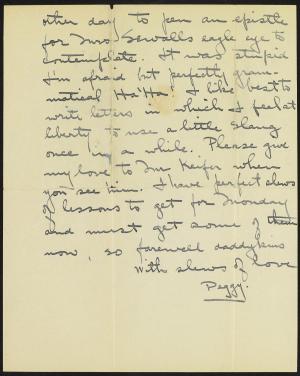 other day to pen an epistle
for Mrs Sewalls eagle eye to
contemplate. It was stupid
I'm afraid but perfectly gram-
matical Ha "Ha! I like best to
write letters in which I feel at
liberty to use a little slang
once in a while. Please give
my love to Mr Keifer when
you see him. I have perfect slews
of lessons to get for Monday
and must get some of them
now, so farewell daddykins
With slews of love
Peggy.